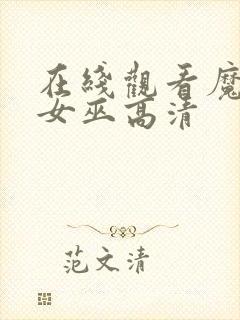 在綫觀看魔
女巫高清
范文清